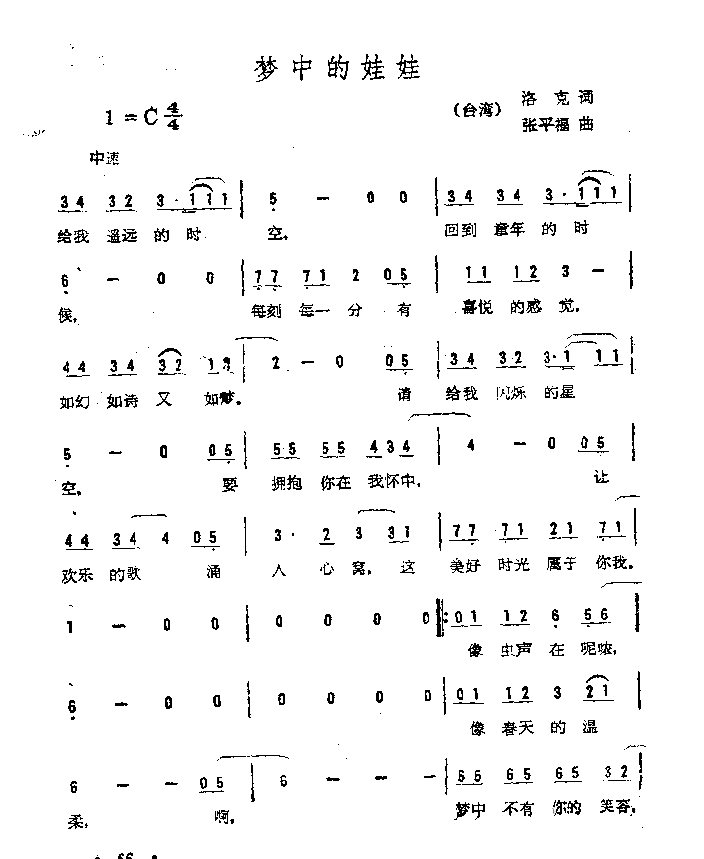 梦中的娃娃
1=C 4/4
（台湾） 洛克 词
张平福 曲
中速
3 4 3 2 3 · 1 1 1 | 5 — 0 0 | 3 4 3 4 3 · 1 1 1 |
给我 遥远 的 时 空, 回到 童年 的 时
6 — 0 0 | 7 7 7 1 2 0 5 | 1 1 1 2 3 — |
候, 每刻 每一 分 有 喜悦 的感 觉,
4 4 3 4 3 2 1 | 2 — 0 0 5 | 3 4 3 2 3 · 1 1 1 |
如幻 如诗 又 如梦。 请 给我 闪烁 的星
5 — 0 0 5 | 5 5 5 5 4 3 4 | 4 — 0 0 5 |
空, 要 拥抱 你在 我怀中, 让
4 4 3 4 4 0 5 | 3 · 2 3 3 1 | 7 7 7 1 2 1 7 1 |
欢乐 的歌 涌 入 心 窝, 这 美好 时光 属于 你我。
1 — 0 0 | 0 0 0 0 ‖: 0 1 1 2 6 5 6 |
像 虫声 在 呢哝,
6 — 0 0 | 0 0 0 0 | 0 1 1 2 3 2 1 |
像 春天 的 温
6 — — 0 5 | 6 — — — | 6 6 6 5 6 5 3 2 |
柔, 啊, 梦中 不有 你的 笑容,
· 66 ·